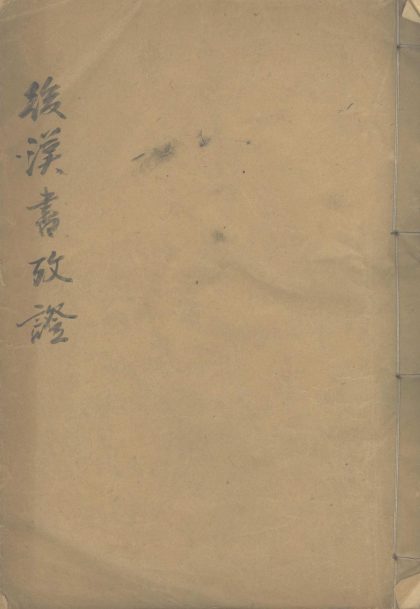 後漢書攷證